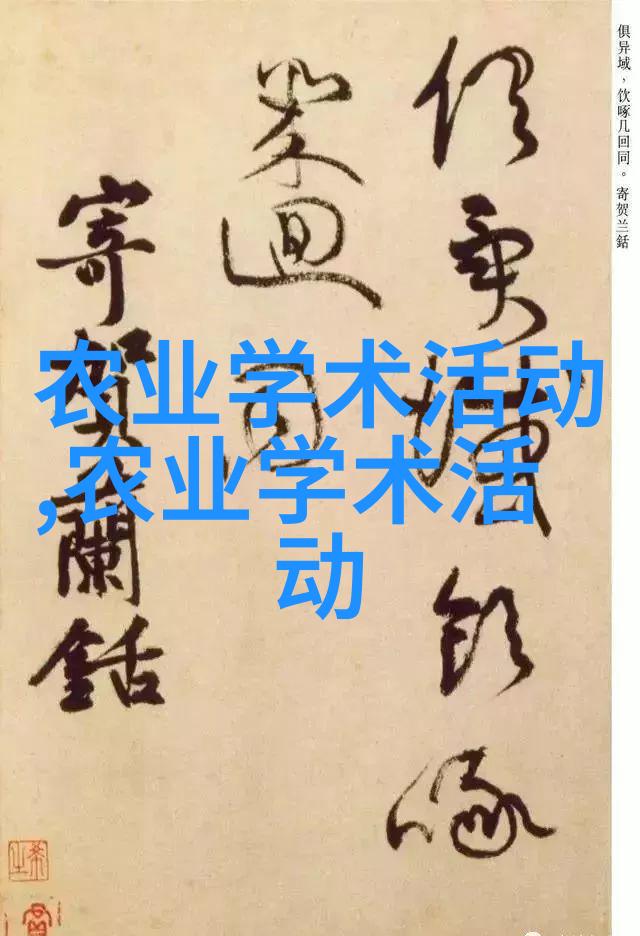 俱异域，饮啄几回同。寄贺兰銛
俱異域飲啄
幾迴同
寄賀蘭銛
农业学术活动
,农业学术活
动